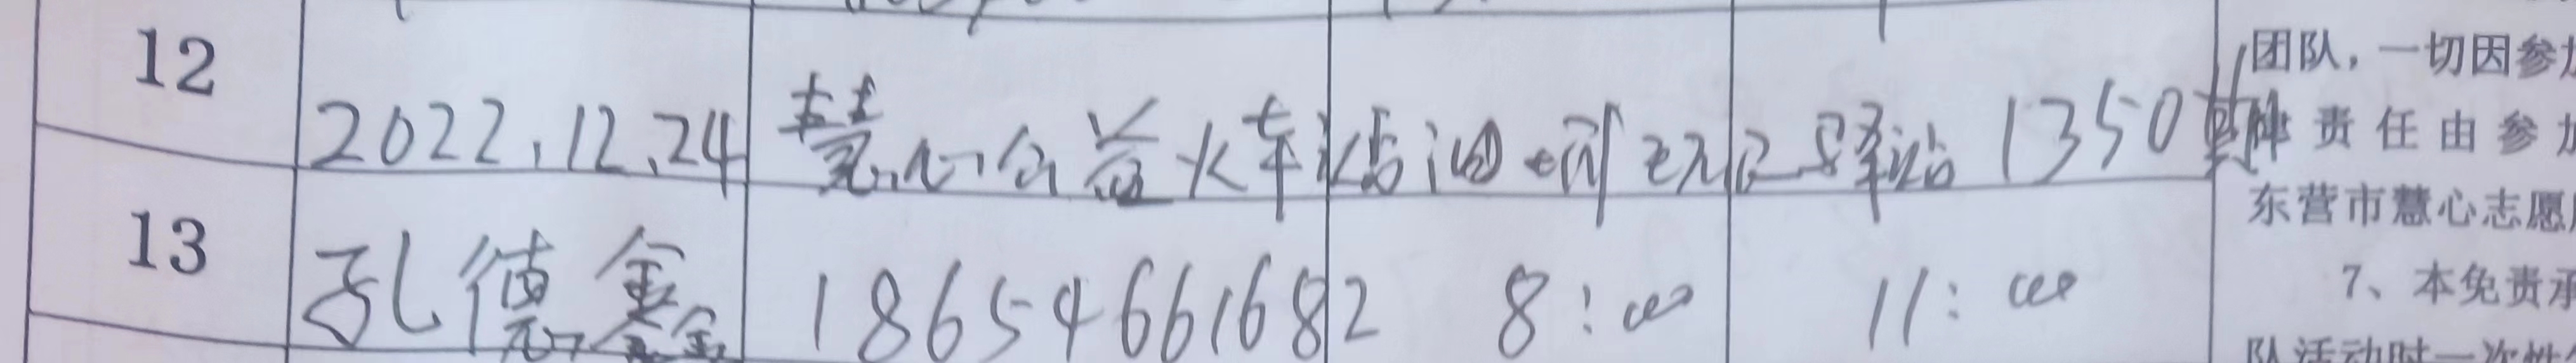 12
2022.12.24 慧心公益火车站 1350
13
孔德鑫 18654661682 8:00 11:00
团队，一切因参加
责任由参加
东营市慧心志愿
7、本免责承
队活动时一次性